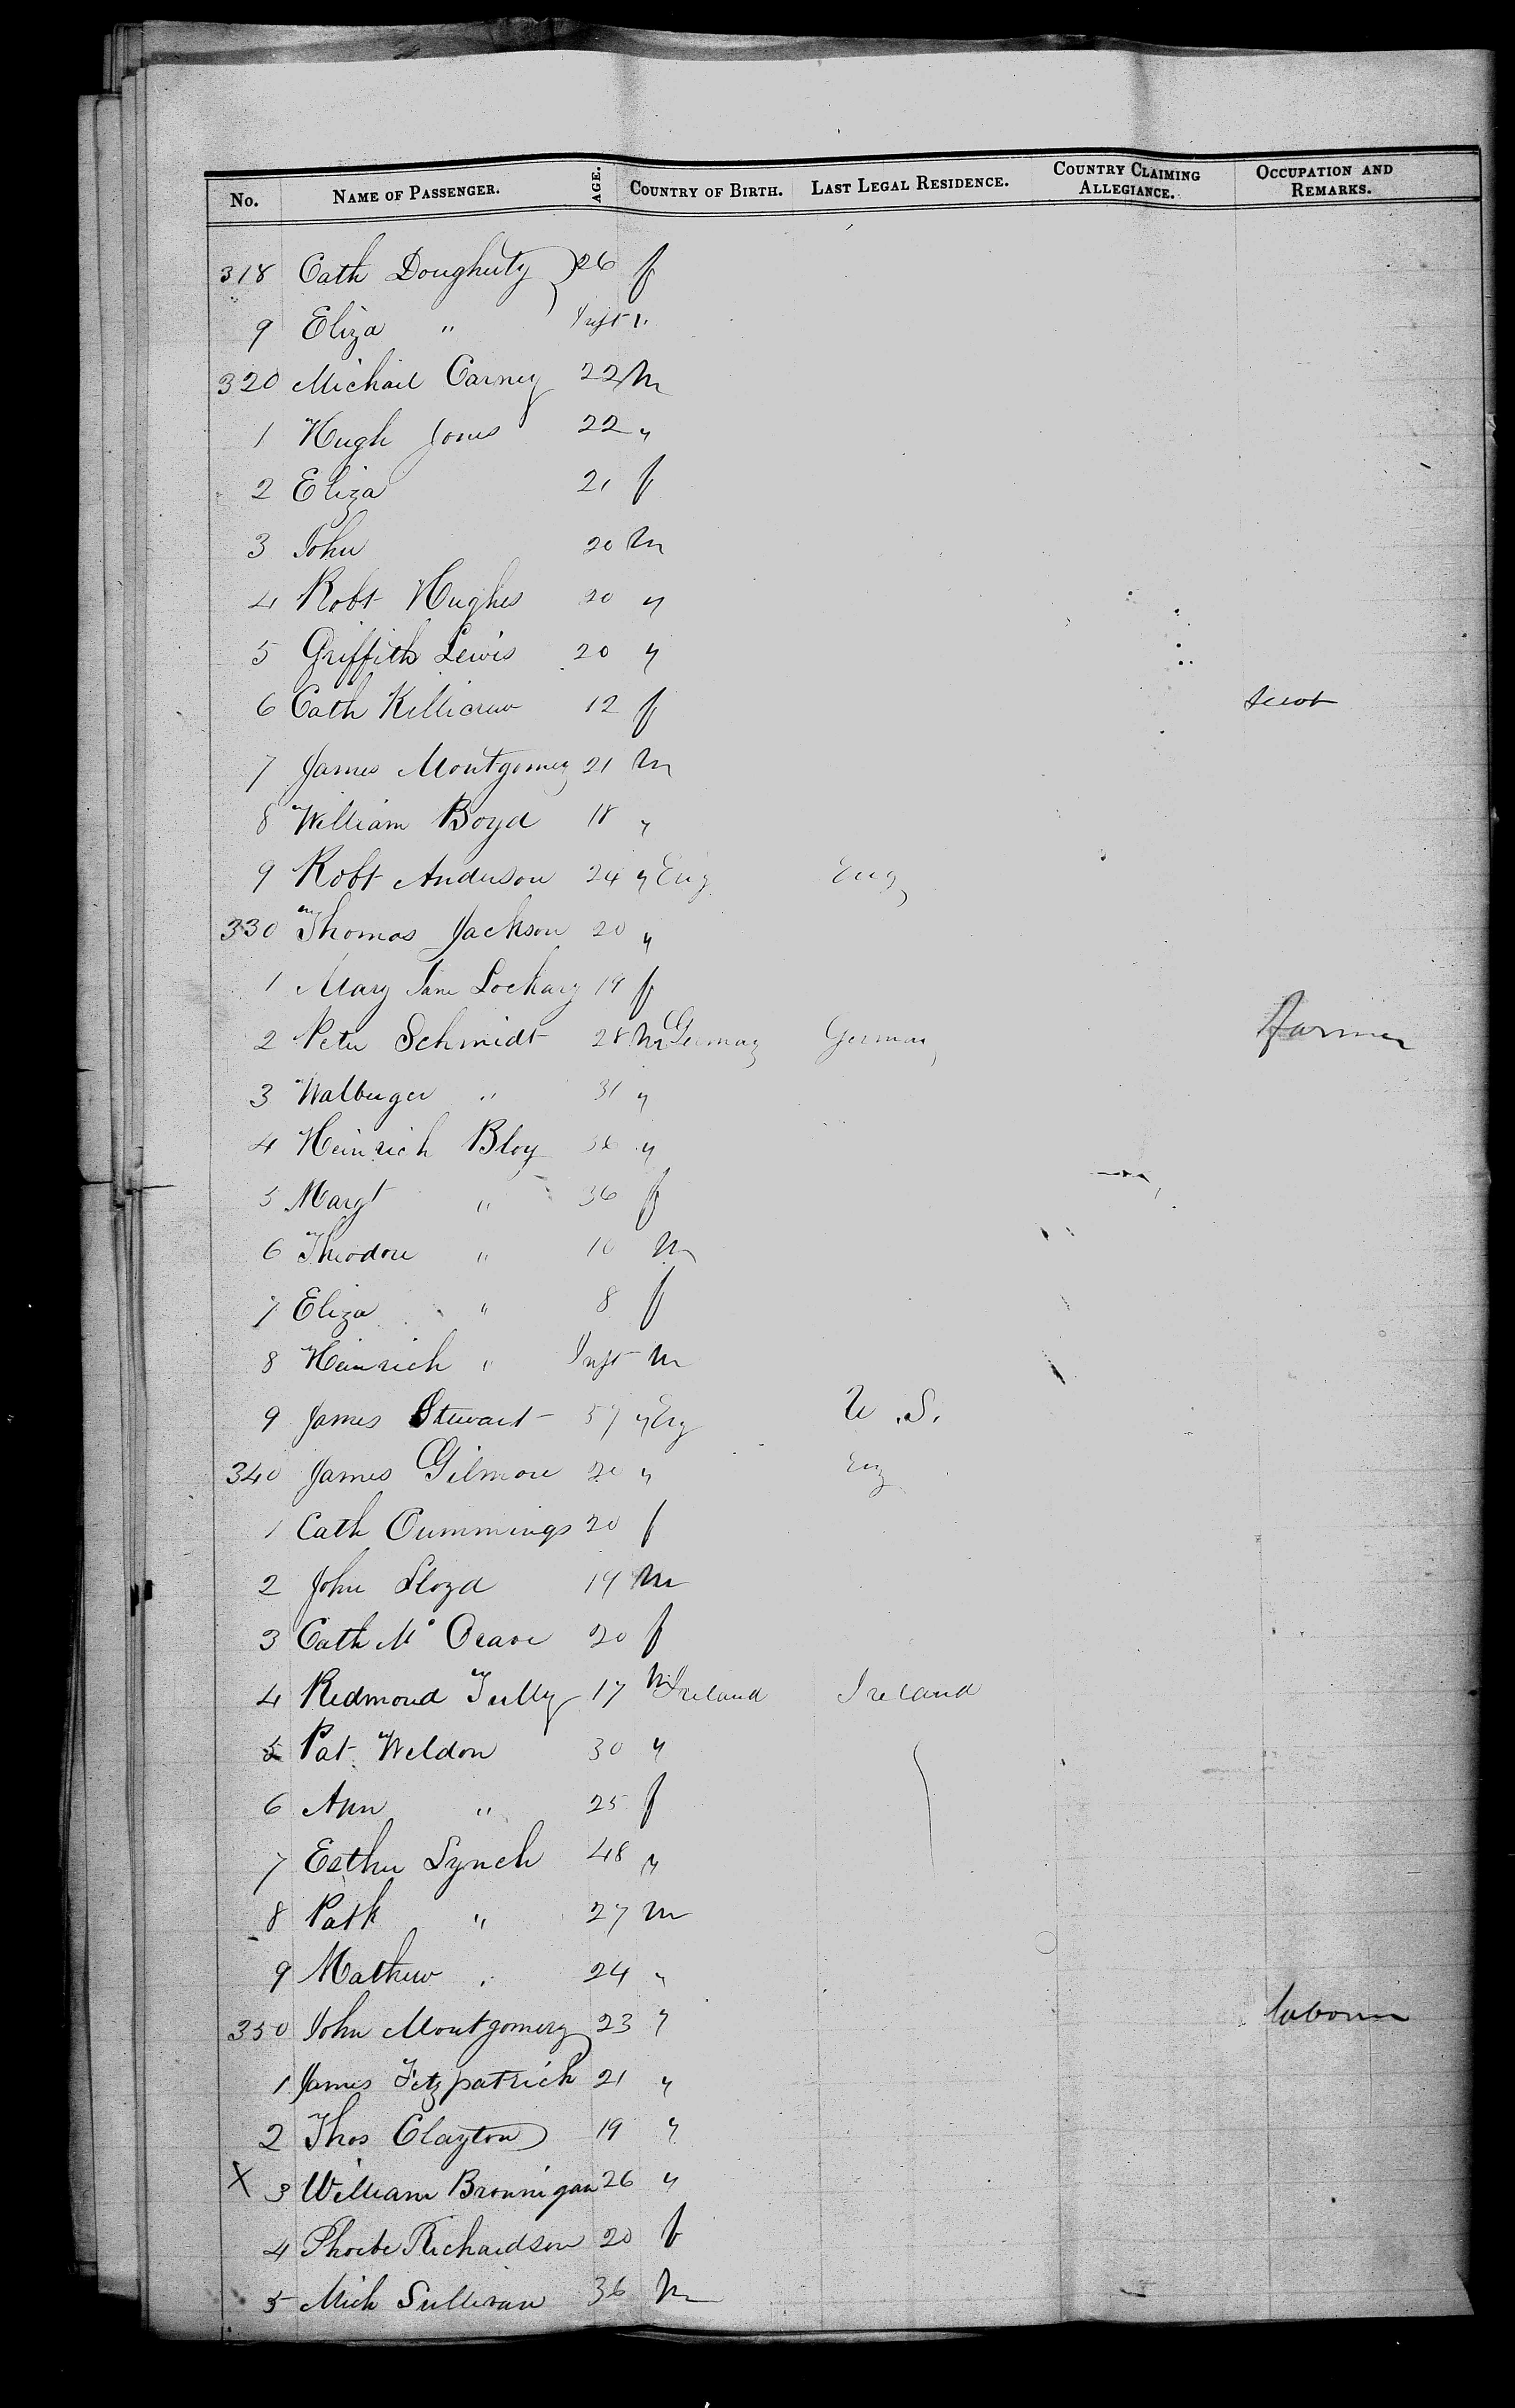 No. NAME OF PASSENGER. AGE. COUNTRY OF BIRTH. LAST LEGAL RESIDENCE. COUNTRY CLAIMING ALLEGIANCE. OCCUPATION AND REMARKS.
318 Cath Dougherty 26 f
9 Eliza " Inft "
320 Michael Carney 22 m
1 Hugh Jones 22 "
2 Eliza 21 f
3 John 20 m
4 Robt Hughes 20 "
5 Griffith Lewis 20 "
6 Cath 12 f
7 James Montgomery 21 m
8 William Boyd 18 "
9 Robt Anderson 24 " Eng Eng
330 Thomas Jackson 20 "
1 Mary Jane Lockary 19 f
2 Peter Schmidt 28 m Germany German farmer
3 Walburger " 31 "
4 Heinrich Bloy 36 "
5 Margt " 36 f
6 Theodore " 10 m
7 Eliza " 8 f
8 Heinrich " Inft m
9 James Stewart 57 " Eng U.S.
340 James Gilmore 20 " Eng
1 Cath Cummings 20 f
2 John Lloyd 19 m
3 Cath Mc 20 f
4 Redmond Tully 17 m Ireland Ireland
5 Pat Weldon 30 "
6 Ann " 25 f
7 Esther Lynch 48 "
8 Patk " 27 m
9 Mathew " 24 "
350 John Montgomery 23 " laborer
1 James Fitzpatrick 21 "
2 Thos Clayton 19 "
X 3 William Brannigan 26 "
4 Phoebe Richardson 20 f
5 Mich Sullivan 36 m